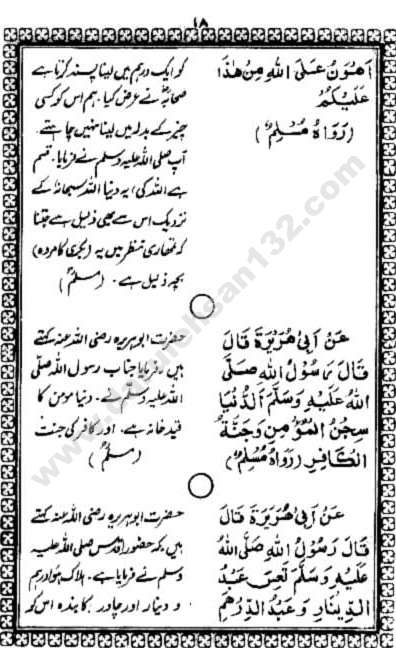 ١٨
اَهْوَنُ عَلَى اللهِ مِنْ هٰذَا
عَلَيْكُمْ
(رَوَاهُ مُسْلِمٌ)
کو ایک درہم میں لینا پسند کرتا ہے
صحابہؓ نے عرض کیا۔ ہم اس کو کسی
چیز کے بدلہ میں لینا نہیں چاہتے۔
آپ صلی اللہ علیہ وسلم نے فرمایا۔ قسم
ہے اللہ کی! یہ دنیا اللہ سبحانہٗ کے
نزدیک اس سے بھی ذلیل ہے جتنا
کہ تمھاری نظر میں یہ (بکری کا مردہ)
بچہ ذلیل ہے۔ (مسلمؒ)
عَنْ اَبِيْ هُرَيْرَةَ قَالَ
قَالَ رَسُوْلُ اللهِ صَلَّى
اللهُ عَلَيْهِ وَسَلَّمَ اَلدُّنْيَا
سِجْنُ الْمُؤْمِنِ وَجَنَّةُ
الْكَافِرِ (رَوَاهُ مُسْلِمٌ)
حضرت ابوہریرہ رضی اللہ عنہ کہتے
ہیں۔ فرمایا جناب رسول اللہ صلی
اللہ علیہ وسلم نے۔ دنیا مومن کا
قید خانہ ہے، اور کافر کی جنت
(مسلمؒ)
عَنْ اَبِيْ هُرَيْرَةَ قَالَ
قَالَ رَسُوْلُ اللهِ صَلَّى اللهُ
عَلَيْهِ وَسَلَّمَ تَعِسَ عَبْدُ
الدِّيْنَارِ وَعَبْدُ الدِّرْهَمِ
حضرت ابوہریرہ رضی اللہ عنہ کہتے
ہیں کہ حضور اقدس صلی اللہ علیہ
وسلم نے فرمایا ہے۔ ہلاک ہوا درہم
و دینار اور چادر کا بندہ اس کو